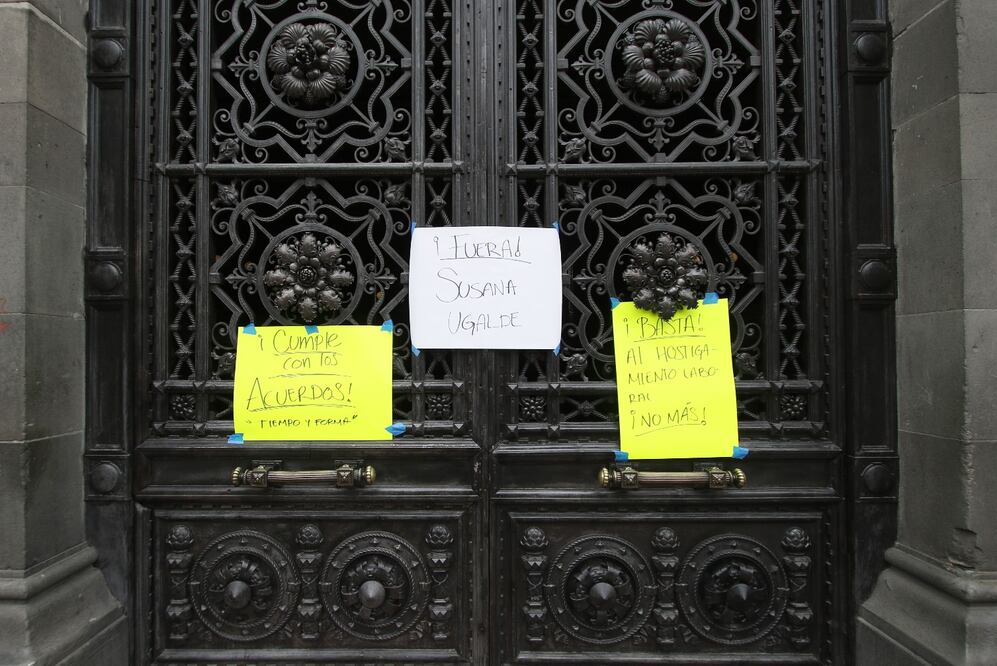 ¡CUMPLE
CON TOS
ACUERDOS!
"TIEMPO Y FORMA"
¡FUERA!
SUSANA
UGALDE
¡BASTA!
AL HOSTIGA-
MIENTO LABO-
RAL
¡NO MÁS!